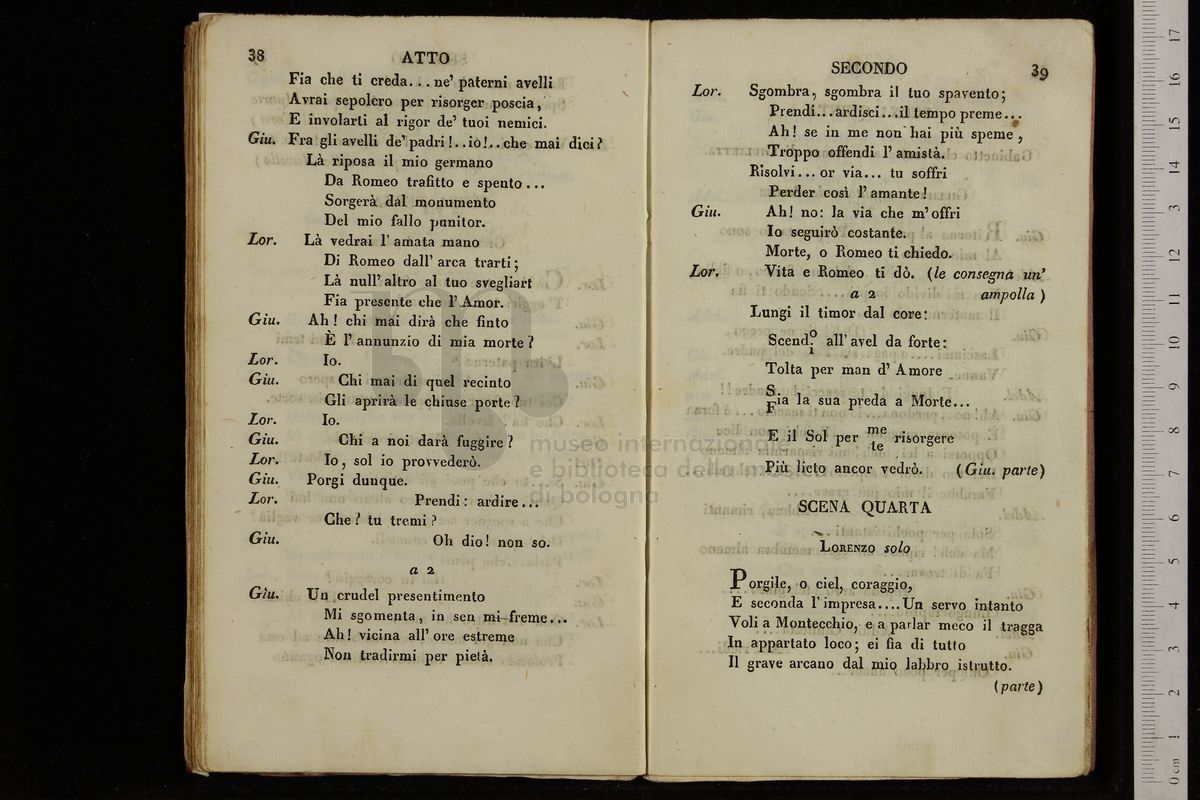 38
ATTO
Fia che ti creda... ne' paterni avelli
Avrai sepolcro per risorger poscia,
E involarti al rigor de' tuoi nemici.
Giu. Fra gli avelli de' padri!..io!..che mai dici?
Là riposa il mio germano
Da Romeo trafitto e spento...
Sorgerà dal monumento
Del mio fallo punitor.
Lor. Là vedrai l' amata mano
Di Romeo dall' arca trarti;
Là null' altro al tuo svegliart
Fia presente che l' Amor.
Giu. Ah! chi mai dirà che finto
È l' annunzio di mia morte?
Lor. Io.
Giu. Chi mai di quel recinto
Gli aprirà le chiuse porte?
Lor. Io.
Giu. Chi a noi darà fuggire?
Lor. Io, sol io provvederò.
Giu. Porgi dunque.
Lor. Prendi: ardire...
Che? tu tremi?
Giu. Oh dio! non so.
a 2
Giu. Un crudel presentimento
Mi sgomenta, in sen mi freme...
Ah! vicina all' ore estreme
Non tradirmi per pietà.
SECONDO
39
Lor. Sgombra, sgombra il tuo spavento;
Prendi...ardisci...il tempo preme...
Ah! se in me non hai più speme,
Troppo offendi l' amistà.
Risolvi... or via... tu soffri
Perder così l' amante!
Giu. Ah! no: la via che m' offri
Io seguirò costante.
Morte, o Romeo ti chiedo.
Lor. Vita e Romeo ti dò. (le consegna un'
a 2 ampolla)
Lungi il timor dal core:
Scend o/i all' avel da forte:
Tolta per man d' Amore
S/F ia la sua preda a Morte...
E il Sol per me/te risorgere
Più lieto ancor vedrò. (Giu. parte)
SCENA QUARTA
LORENZO solo
Porgile, o ciel, coraggio,
E seconda l' impresa....Un servo intanto
Voli a Montecchio, e a parlar meco il tragga
In appartato loco; ei fia di tutto
Il grave arcano dal mio labbro istrutto.
(parte)
museo internazionale
e biblioteca della musica
di bologna
0 cm 1 2 3 4 5 6 7 8 9 10 11 12 13 14 15 16 17